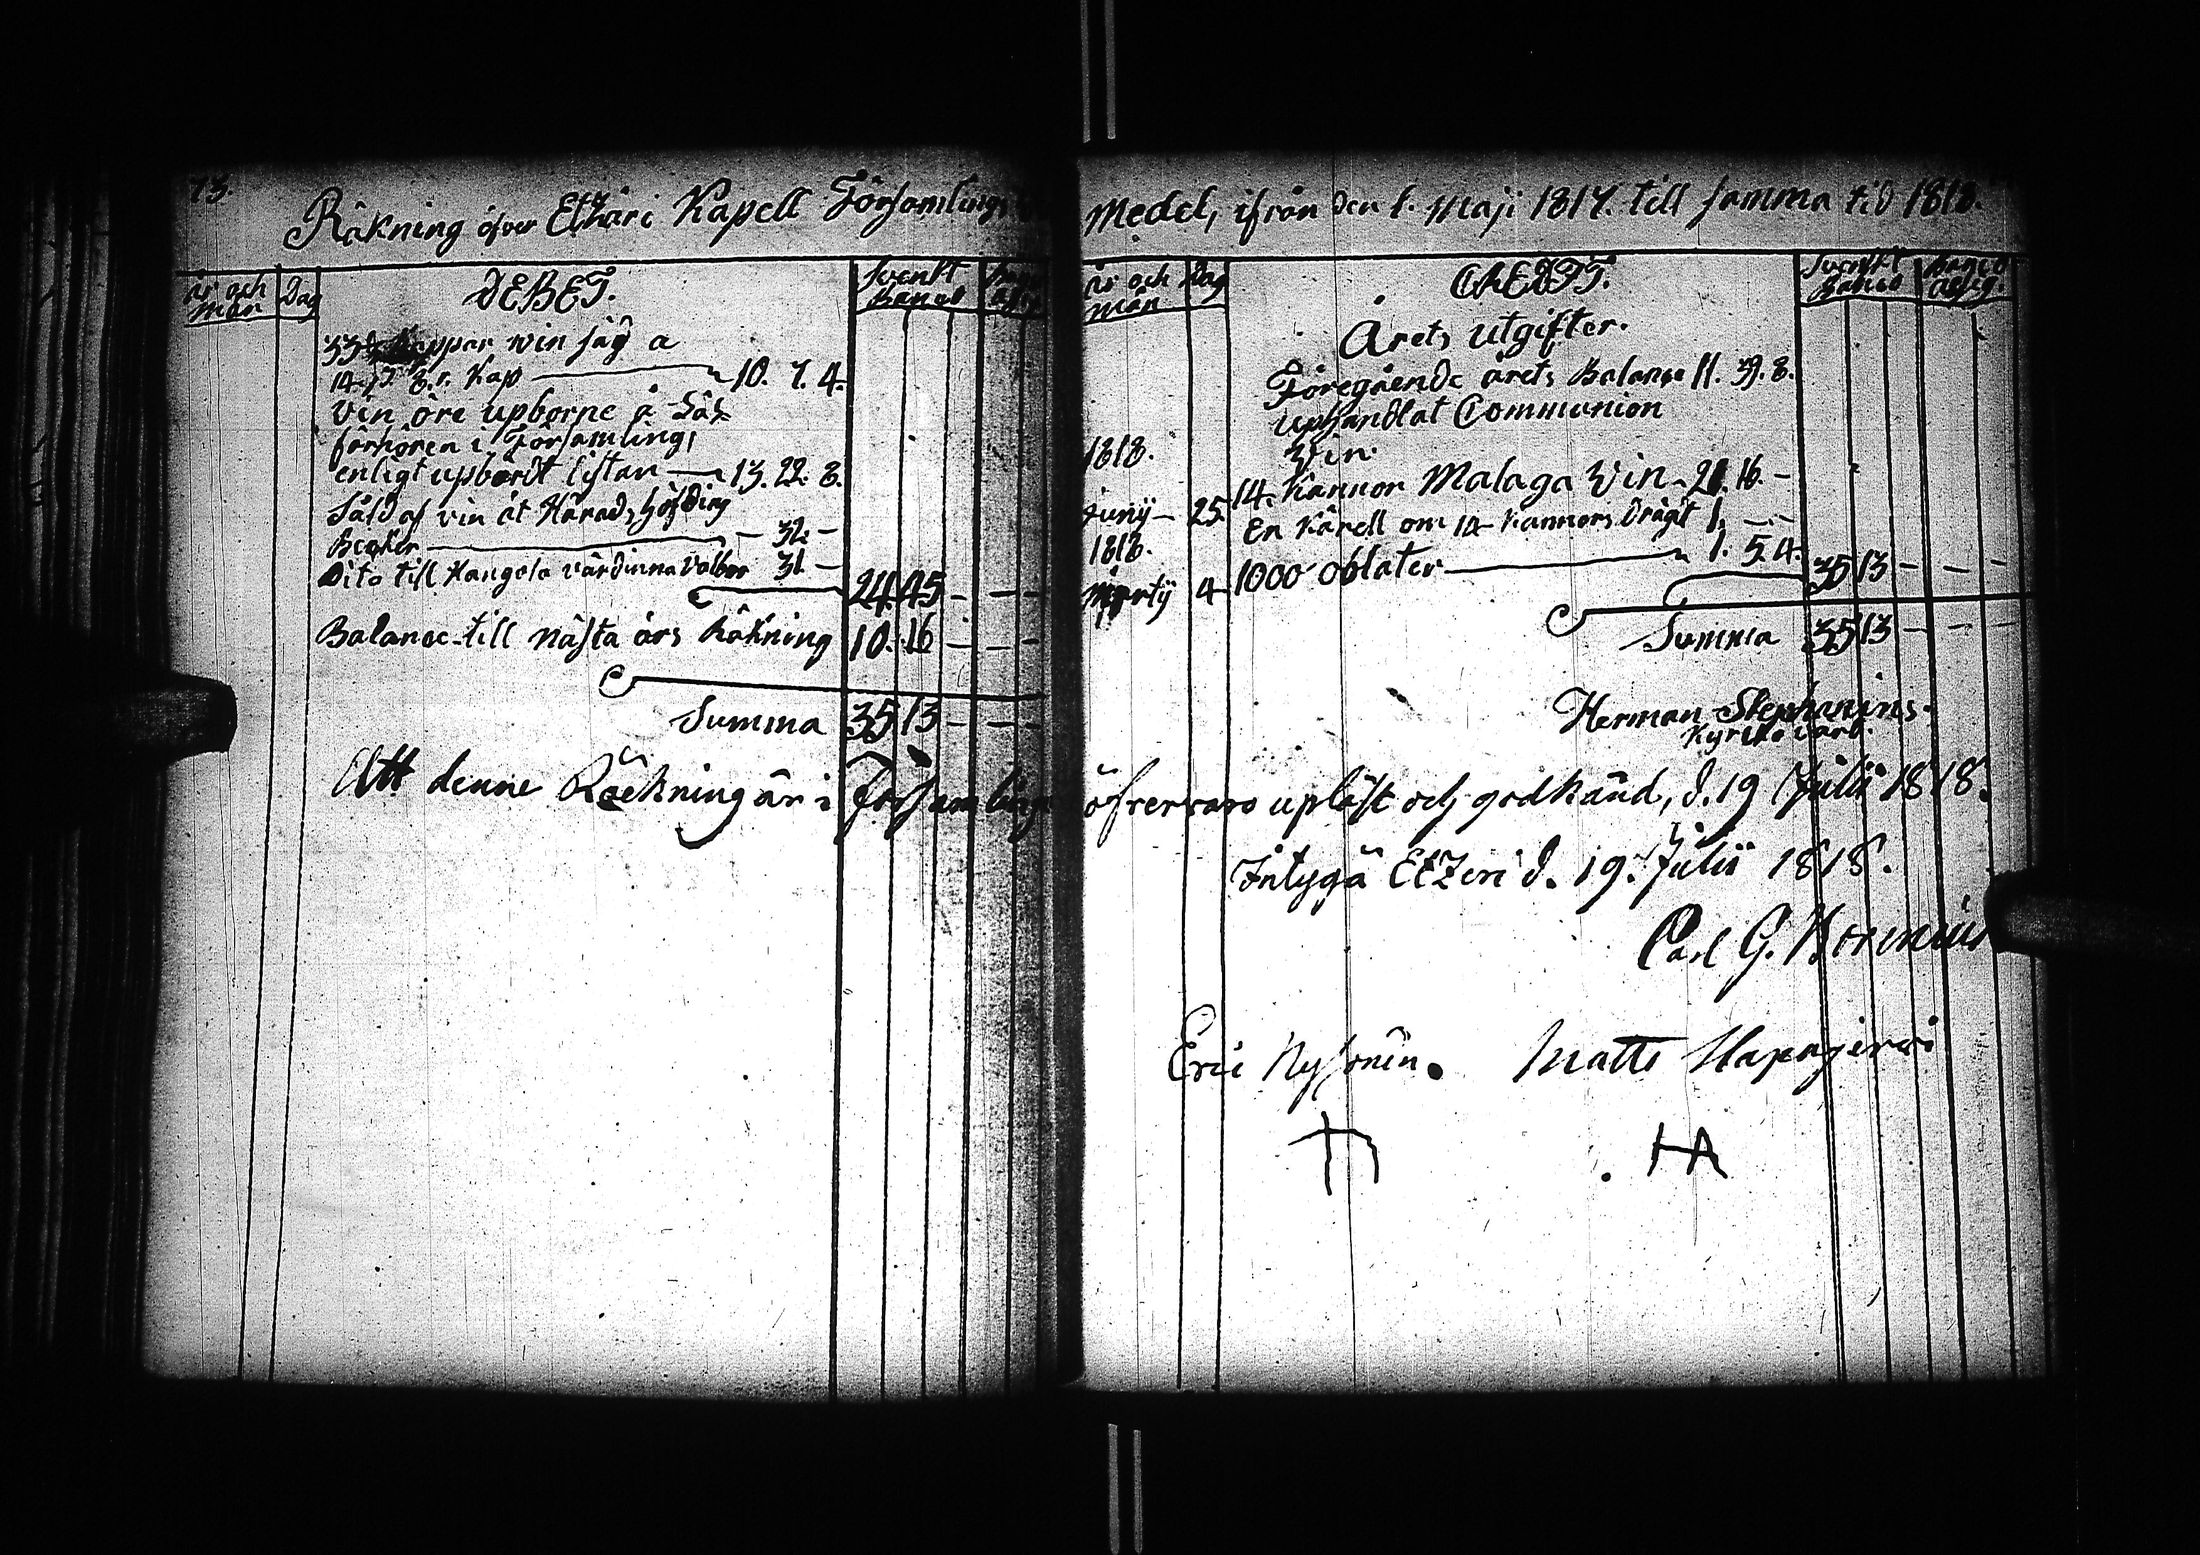 73.
Räkning öfver Etzäri Kapell Församlings
år och
mån
Dag
DEBET.
Svenskt
Banco
Kappar win såg a
14. ſ. 8. r. Kap 10. 7. 4.
Vin öre upborne å Läs
förhören i Församling,
enligt upbördt listan 13. 22. 8.
Såld af vin åt Härads höfding
Becker - 32. -
Dito till Hangola värdinna Valbor 31 -
24. 45 - - -
Balance till nästa års Räkning 10. 16 - - -
Summa 35 13 - - -
Att denne Räkning är i Församlings
Medel, ifrån den 1. Maji 1817. till samma tid 1818.
år och
mån
Dag
CREDIT.
Svenskt
Banco
Banco
assig.
Årets utgifter.
Föregående årets Balance 11. 39. 8.
uphandlat Communion
Vin.
1818.
Junij 25. 14. Kannor Malaga Vin - 21. 16. -
En Kärell om 14 Kannors drägt 1. - -
1818.
Martij 4 1000 oblater 1. 5. 4.
35 13 - - -
Summa 35 13 - - -
Herman Stephanius.
Kyrko värd.
öfvervaro upläst och godkänd, d. 19 Julii 1818.
Intygä Etzeri d. 19. Julii 1818.
Carl G.
Eric Nysonin. Matts Hapajervi
HA